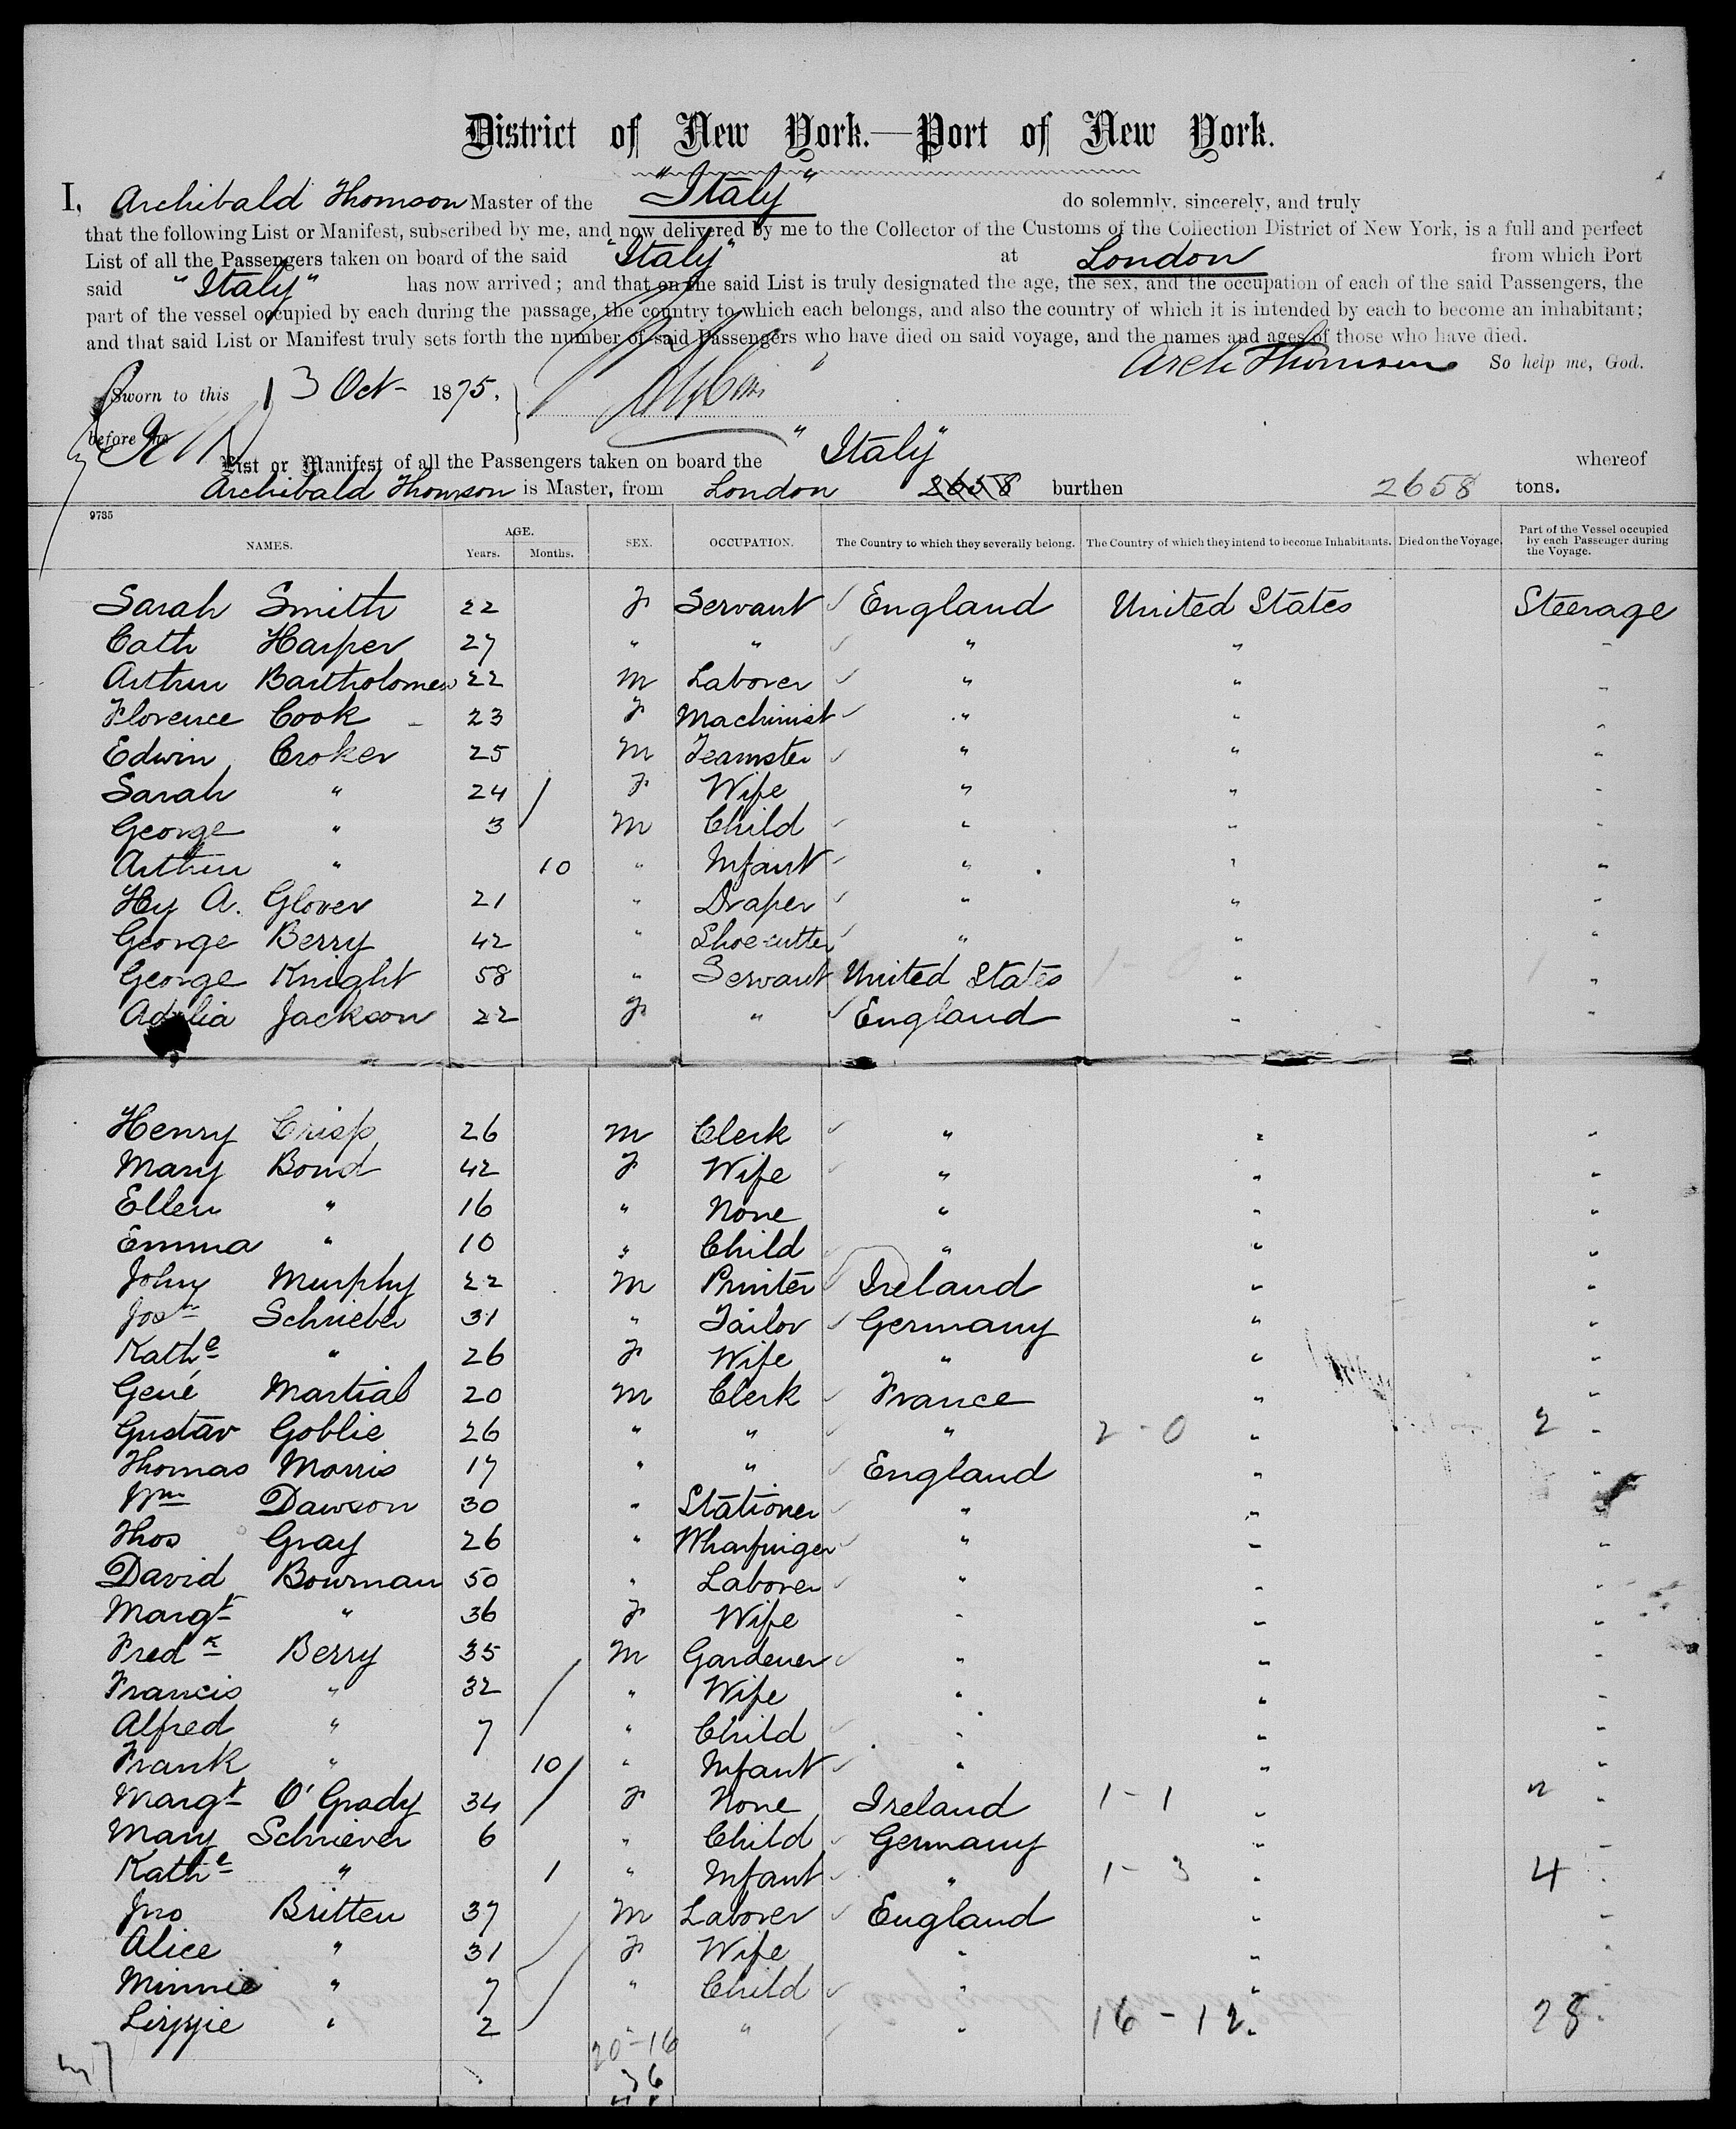 District of New York.—Port of New York.
I, Archibald Thomson Master of the "Italy" do solemnly, sincerely, and truly
that the following List or Manifest, subscribed by me, and now delivered by me to the Collector of the Customs of the Collection District of New York, is a full and perfect
List of all the Passengers taken on board of the said "Italy" at London from which Port
said "Italy" has now arrived; and that on the said List is truly designated the age, the sex, and the occupation of each of the said Passengers, the
part of the vessel occupied by each during the passage, the country to which each belongs, and also the country of which it is intended by each to become an inhabitant;
and that said List or Manifest truly sets forth the number of said Passengers who have died on said voyage, and the names and ages of those who have died.
Arch Thomson So help me, God.
Sworn to this 13 Oct- 1875.
before me
List or Manifest of all the Passengers taken on board the "Italy" whereof
Archibald Thomson is Master, from London 2658 burthen 2658 tons.
9735
NAMES. AGE. Years. Months. SEX. OCCUPATION. The Country to which they severally belong. The Country of which they intend to become Inhabitants. Died on the Voyage. Part of the Vessel occupied by each Passenger during the Voyage.
Sarah Smith 22 F Servant England United States Steerage
Cath Harper 27 " " " " "
Arthur Bartholomew 22 M Laborer " " "
Florence Cook 23 F Machinist " " "
Edwin Croker 25 M Teamster " " "
Sarah " 24 F Wife " " "
George " 3 M Child " " "
Arthur " 10 " Infant " " "
Hy A. Glover 21 " Draper " " "
George Berry 42 " Shoe-cutter " " "
George Knight 58 " Servant United States " "
Adelia Jackson 22 F " England " "
Henry Crisp 26 M Clerk " " "
Mary Bond 42 F Wife " " "
Ellen " 16 " None " " "
Emma " 10 " Child " " "
John Murphy 22 M Printer Ireland " "
Josh Schrieber 31 " Tailor Germany " "
Kathe " 26 F Wife " " "
Gené Martial 20 M Clerk France " "
Gustav Goblie 26 " " " 2-0 " 2 "
Thomas Morris 17 " " England " "
Wm Dawson 30 " Stationer " " "
Thos Gray 26 " Wharfinger " " "
David Bowman 50 " Laborer " " "
Margt " 36 F Wife " " "
Fredk Berry 35 M Gardener " " "
Francis " 32 " Wife " " "
Alfred " 7 " Child " " "
Frank " 10 " Infant " " "
Margt O'Grady 34 F None Ireland 1-1 " "
Mary Schriever 6 " Child Germany " "
Kathe " 1 " Infant " 1-3 " 4 "
Jno Britten 37 M Laborer England " "
Alice " 31 F Wife " " "
Minnie " 7 " Child " " "
Lizzie " 2 " " " 16-12 " 28 "
20-16
36